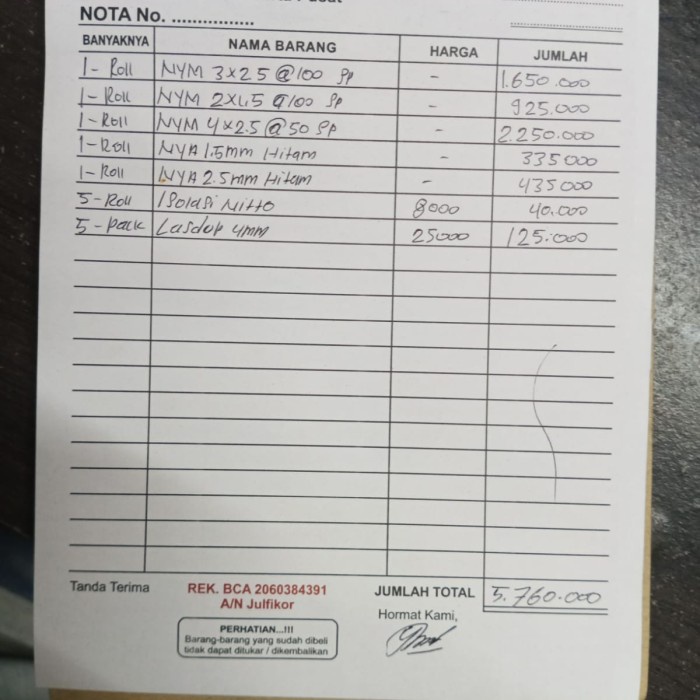 NOTA No. ................
BANYAKNYA NAMA BARANG HARGA JUMLAH
1 - Roll NYM 3x2.5 @100 Sp - 1.650.000
1 - Roll NYM 2x1,5 @100 Sp - 925.000
1 - Roll NYM 4x2.5 @50 Sp - 2.250.000
1 - Roll NYA 1.5mm Hitam - 335000
1 - Roll NYA 2.5mm Hitam - 435000
5 - Roll Isolasi Nitto 8000 40.000
5 - pack Lasdop 4mm 25000 125.000
Tanda Terima REK. BCA 2060384391 JUMLAH TOTAL 5.760.000
A/N Julfikor
Hormat Kami,
PERHATIAN...!!!
Barang-barang yang sudah dibeli
tidak dapat ditukar / dikembalikan